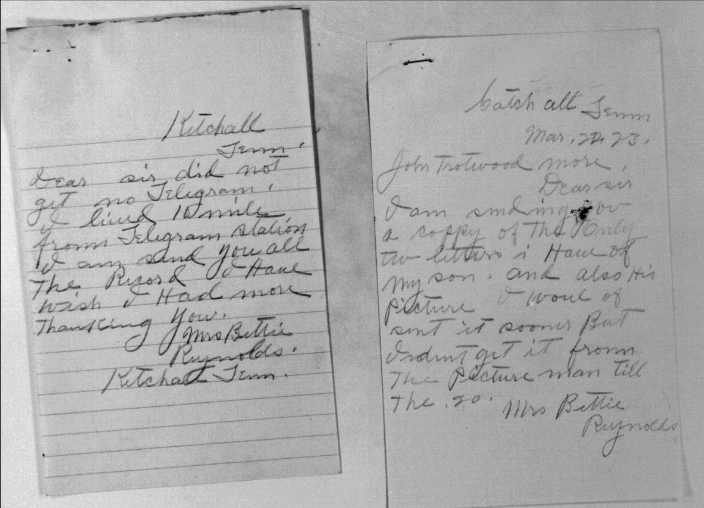 Kitchall
Tenn.
Dear sir did not
get no Telegram.
I lived 10 mile
fromm Telegram station
I am send you all
The Record I Have
wish I Had more
Thanking you.
Mrs Bettie
Reynolds.
Kitchall Tenn.
Catch all Tenn
Mar. 23.
John Trotwood more.
Dear sir
I am sending you
a coppy of The Only
two letters i Have of
my son. and also His
Picture I woul of
sint it sooner But
I didnt get it fromm
The Picture man till
The .20.
Mrs Bettie
Reynolds